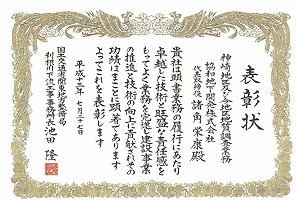 表彰状
神崎地区及今地区地質調査業務
協和地下開発株式会社
代表取締役 諸角栄康殿
貴社は頭書業務の履行にあたり
卓越した技術と旺盛な責任感を
もってよく業務を完遂し建設事業
の推進と技術の向上に貢献されその
功績はまことに顕著であります
よってこれを表彰します
平成十三年七月二十七日
国土交通省関東地方整備局
利根川下流工事事務所長池田 隆